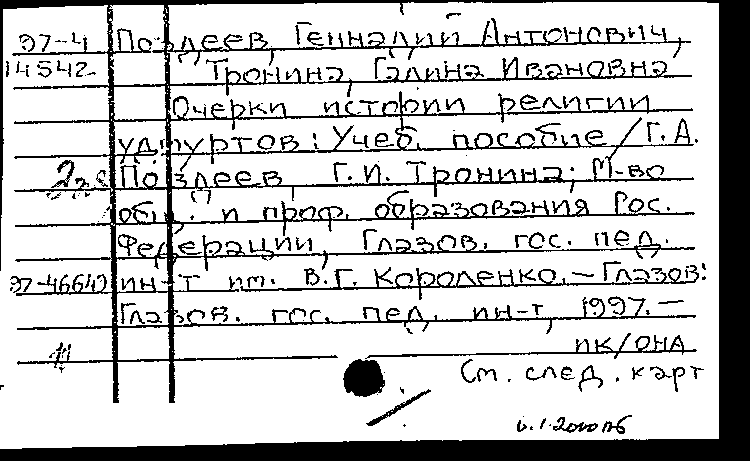 97-4 Поздеев, Геннадий Антонович,
14542 Тронина, Галина Ивановна
Очерки истории религии
удмуртов: Учеб. пособие / Г.А.
2зк Поздеев, Г.И. Тронина; М-во
общ. и проф. образования Рос.
Федерации, Глазов. гос. пед.
97-46642 ин-т им. В.Г. Короленко. — Глазов:
Глазов. гос. пед. ин-т, 1997. —
ПК/ОНА
См. след. карт